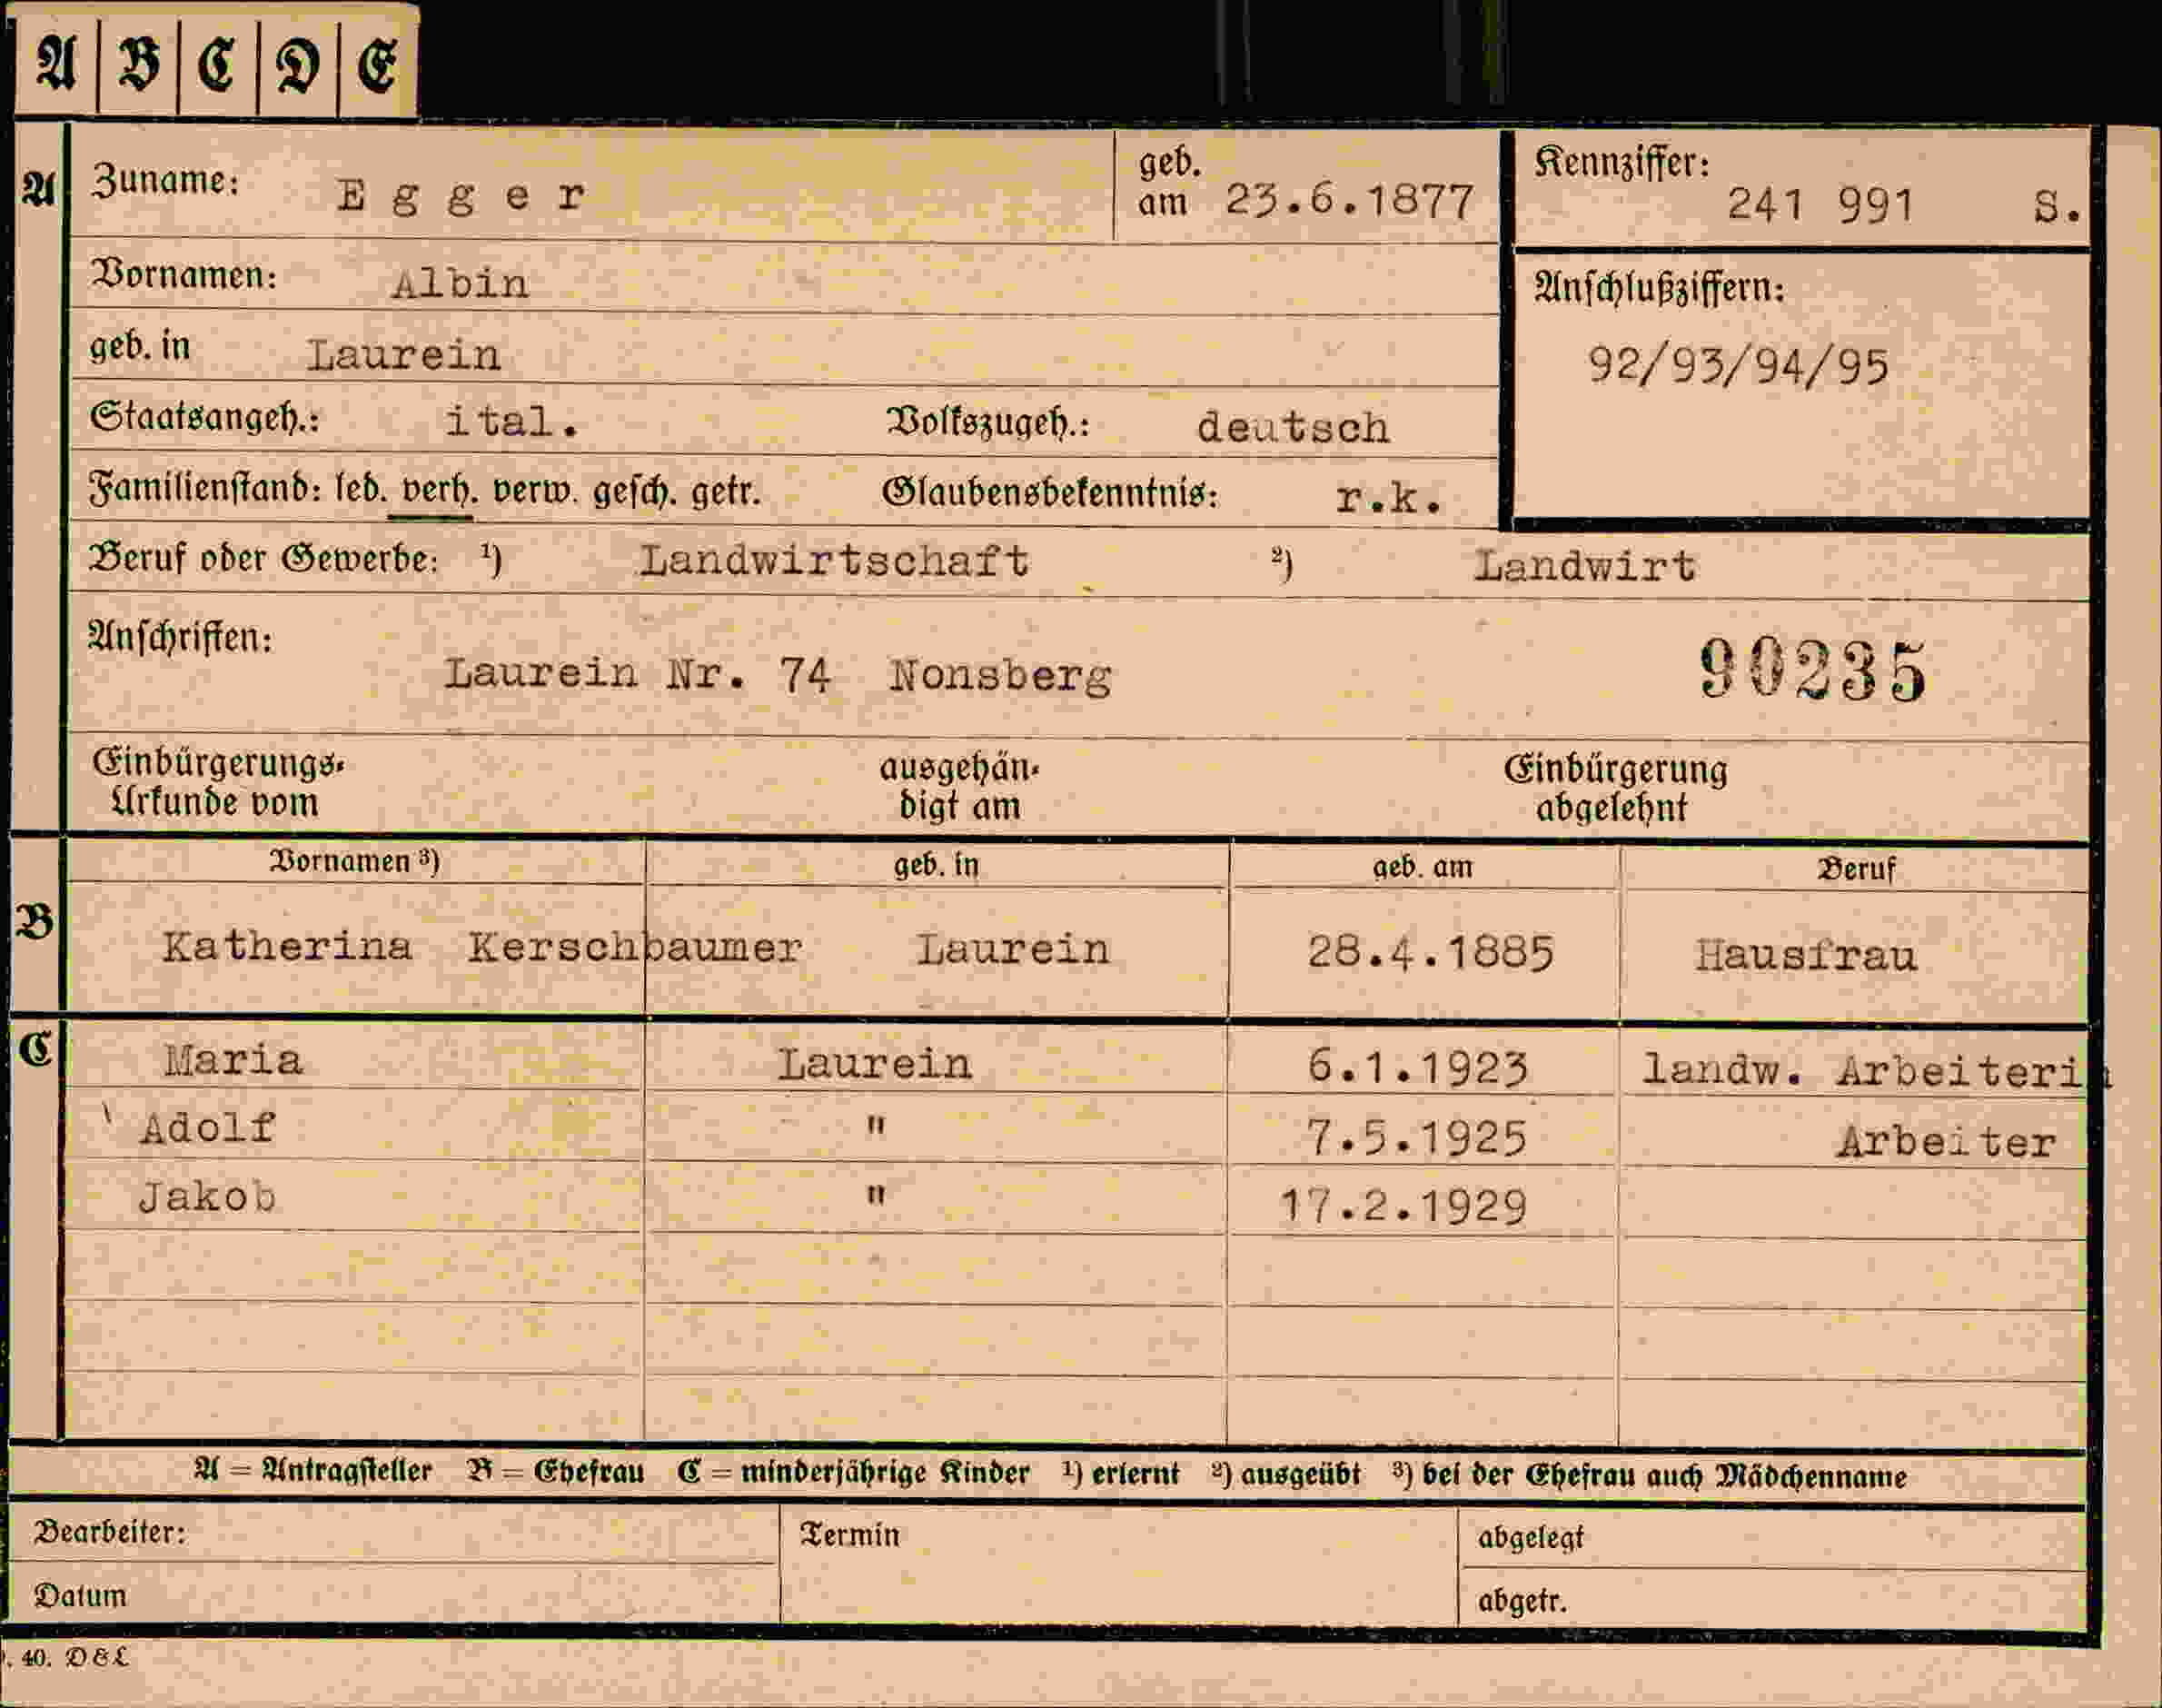 A B C D E
A Zuname: Egger geb. am 23.6.1877 Kennziffer: 241 991 S.
Vornamen: Albin Anschlußziffern:
geb. in Laurein 92/93/94/95
Staatsangeh.: ital. Volkszugeh.: deutsch
Familienstand: led. verh. verw. gesch. getr. Glaubensbekenntnis: r.k.
Beruf oder Gewerbe: ¹) Landwirtschaft ²) Landwirt
Anschriften: Laurein Nr. 74 Nonsberg 90235
Einbürgerungs- ausgehän- Einbürgerung
Urkunde vom digt am abgelehnt
Vornamen ³) geb. in geb. am Beruf
B Katherina Kerschbaumer Laurein 28.4.1885 Hausfrau
C Maria Laurein 6.1.1923 landw. Arbeiterin
Adolf " 7.5.1925 Arbeiter
Jakob " 17.2.1929
A = Antragsteller B = Ehefrau C = minderjährige Kinder ¹) erlernt ²) ausgeübt ³) bei der Ehefrau auch Mädchenname
Bearbeiter: Termin abgelegt
Datum abgetr.
. 40. D&L